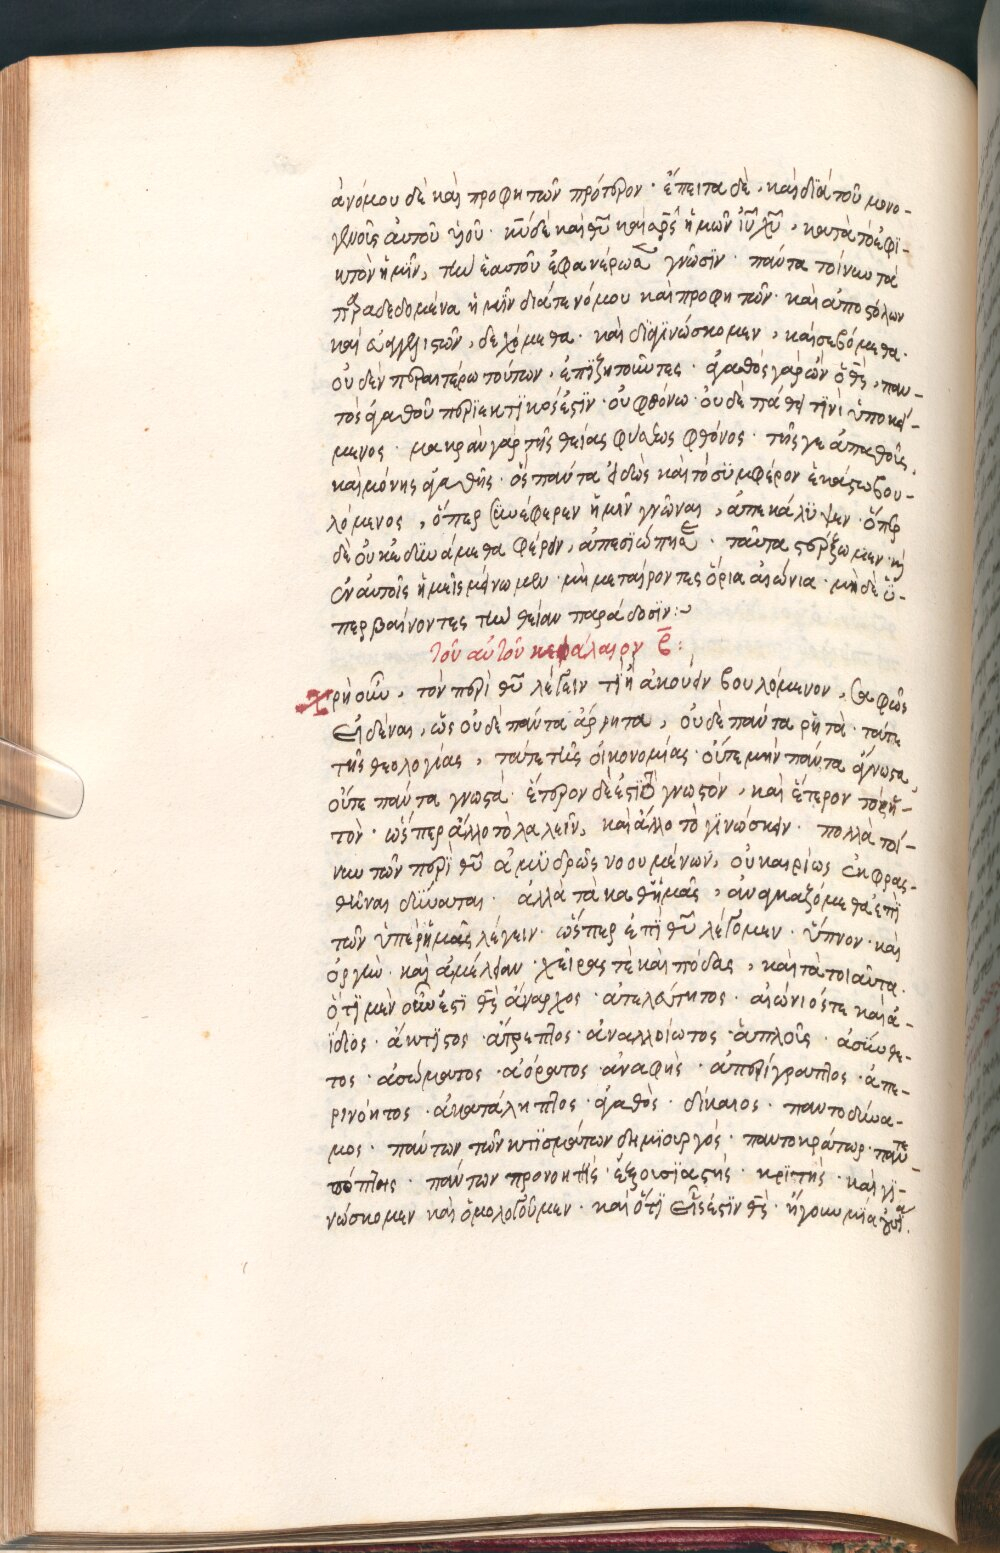 ἀνόμου δὲ καὶ προφητῶν πρότερον· ἔπειτα δὲ, καὶ διὰ τοῦ μονο-
γενοῦς αὐτοῦ ὑιοῦ· κῡ δὲ καὶ θῡ καὶ σρ̅ς ἡμῶν ἰῡ χῡ, κατὰ τὸ ἐφϊ-
κτὸν ἡμῖν, τὴν ἑαυτοῦ ἐφανέρωσε γνῶσϊν· πάντα τοίνυν τὰ
παραδεδομένα ἡμῖν διά τε νόμου καὶ προφητῶν· καὶ ἀποστόλων
καὶ εὐαγγελιστῶν, δεχόμεθα· καὶ διγϊνώσκομεν, καὶ σεβόμεθα·
οὐδὲν περαιτέρω τούτων, ἐπϊζητοῦντες· ἀγαθὸς γὰρ ὢν ὁ θς̅, παν-
τὸς ἀγαθοῦ περϊεκτϊκός ἐστϊν· οὐ φθόνω· οὐδὲ πάθει τϊνὶ ὑποκεί-
μενος· μακρὰν γὰρ τῆς θείας φύσεως φθόνος· τῆς γε ἀπαθοῦς,
καὶ μόνης ἀγαθῆς· ὡς πάντα εἰδὼς καὶ τὸ συμφέρον ἑκάστω βου-
λόμενος, ὅπερ συνέφερεν ἡμῖν γνῶναι, ἀπεκάλυψεν· ὅπερ
δὲ οὐκ ἐδυνάμεθα φέρειν, ἀπεσϊώπησε· ταῦτα στέρξωμεν· κὶ
ἐν αὐτοῖς ἡμεῖς μένωμεν· μὴ μεταίροντες ὅρια αἰώνια· μηδὲ ὑ-
περβαίνοντες τὴν θείαν παράδοσϊν:~
Τοῦ αὐτοῦ κεφάλαιον β̅:
Χρὴ οὖν, τὸν περὶ θῡ λέγειν τϊ ἢ ἀκούειν βουλόμενον, σαφῶς
εἰδέναι, ὡς οὐδὲ πάντα ἄρρητα, οὐδὲ πάντα ῥητὰ· τά τε
τῆς θεολογίας, τά τε τῆς οἰκονομίας· οὔτε μὴν πάντα ἄγνωστα,
οὔτε πάντα γνωστὰ· ἕτερον δέ ἐστϊ τὸ γνωστὸν, καὶ ἕτερον τὸ ῥη-
τὸν· ὥσπερ ἄλλο τὸ λαλεῖν, καὶ ἄλλο τὸ γϊνώσκειν· πολλὰ τοί-
νυν τῶν περὶ θῡ ἀμυδρῶς νοουμένων, οὐ καιρίως ἐκφρασ-
θῆναι δύναται· ἀλλὰ τὰ καθ' ἡμᾶς, ἀναγκαζόμεθα ἐπὶ
τῶν ὑπὲρ ἡμᾶς λέγειν· ὥσπερ ἐπὶ θῡ λέγομεν· ὕπνον· καὶ
ὀργὴν· καὶ ἀμέλειαν· χεῖρας τὲ καὶ πόδας, καὶ τὰ τοιαῦτα.
ὅτϊ μὲν οὖν ἐστϊ θς̅ ἄναρχος· ἀτελεύτητος· αἰώνιός τε καὶ ἀ-
ΐδιος· ἄκτϊστος· ἄτρεπτος· ἀναλλοίωτος· ἁπλοῦς· ἀσύνθε-
τος· ἀσώματος· ἀόρατος· ἀναφὴς· ἀπερίγραπτος· ἀπε-
ρινόητος· ἀκατάληπτος· ἀγαθὸς· δίκαιος· παντοδύνα-
μος· πάντων τῶν κτϊσμάτων δημϊουργός· παντοκράτωρ· παντε-
πόπτης· πάντων προνοητὴς· ἐξουσϊαστὴς· κρϊτὴς· καὶ γϊ-
νώσκομεν καὶ ὁμολογοῦμεν· καὶ ὅτϊ εἷς ἐστϊν θς̅· ἤγουν μϊα οὐσϊα.